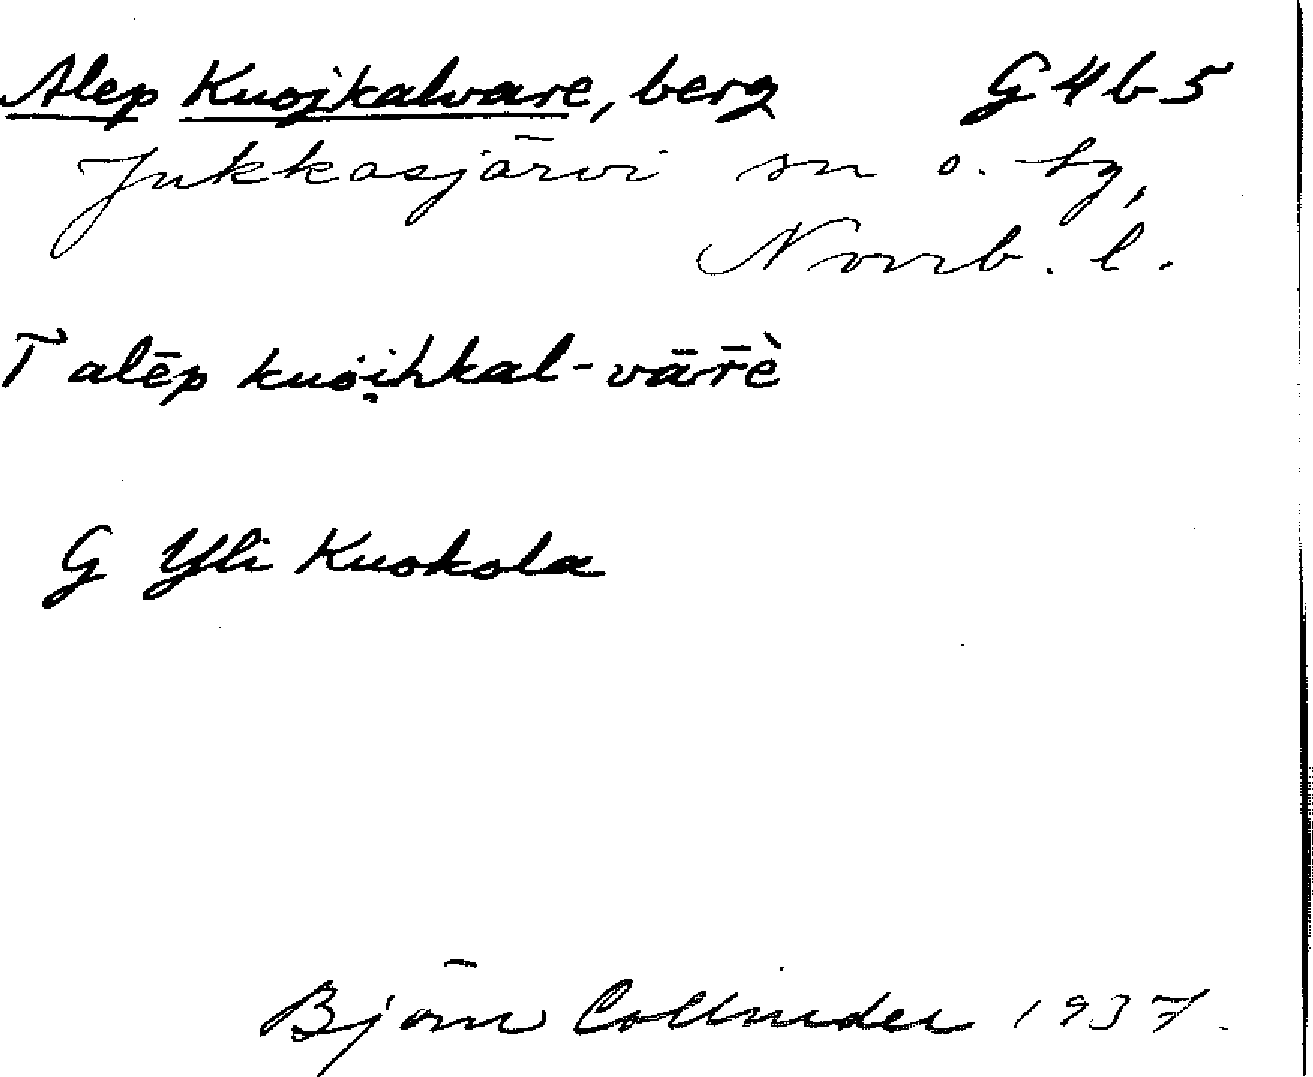 Alep Kuojkalvare, berg G4b5
Jukkasjärvi sn o. tg,
Norrb. l.
T alēp kuȯi̯hkal-vārrè
G Yli Kuokola
Björn Collinder 1937.